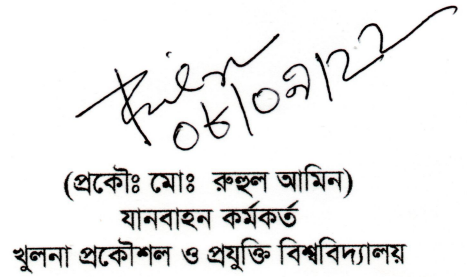 ০৮/০৯/২২
(প্রকৌঃ মোঃ রুহুল আমিন)
যানবাহন কর্মকর্ত
খুলনা প্রকৌশল ও প্রযুক্তি বিশ্ববিদ্যালয়